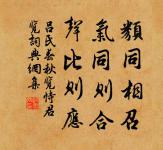 類同相召
氣同則合
聲比則應
呂氏春秋覽恃君
覽詞典網集